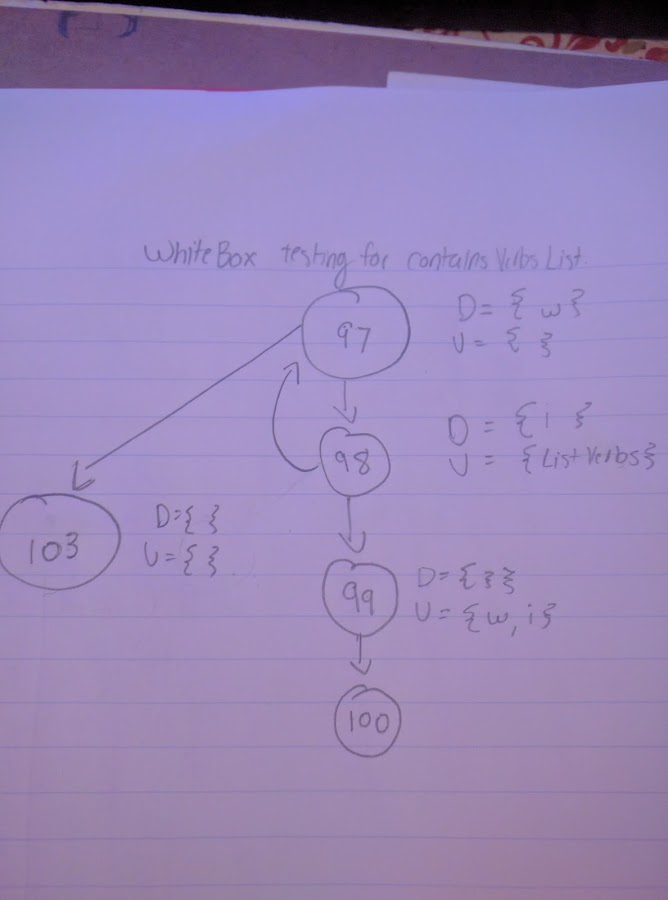 WhiteBox testing for contains Verbs List.
97
D= { w }
U = { }
98
D = { i }
U = { List Verbs }
103
D={ }
U={ }
99
D={ }
U = { w, i }
100